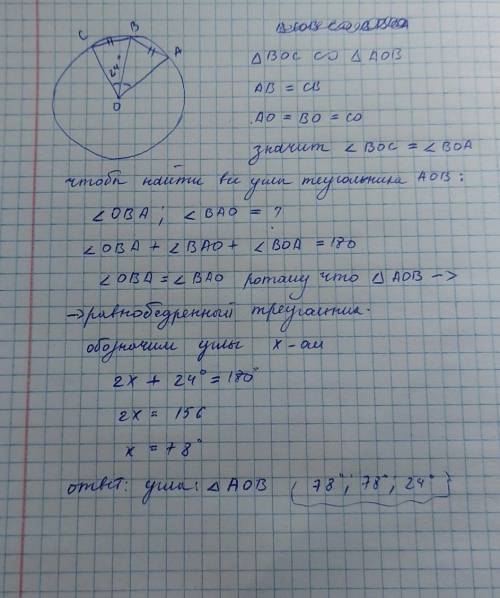 C B A
24°
O
△BOC ∞ △AOB
AB = CB
AO = BO = CO
значит ∠BOC = ∠BOA
чтобы найти все углы теугольника AOB:
∠OBA ; ∠BAO = ?
∠OBA + ∠BAO + ∠BOA = 180
∠OBA = ∠BAO потому что △AOB ->
-> равнобедренный треугольник.
обозначим углы x-ом
2x + 24° = 180°
2x = 156
x = 78°
ответ: углы: △AOB (78°; 78°; 24°)